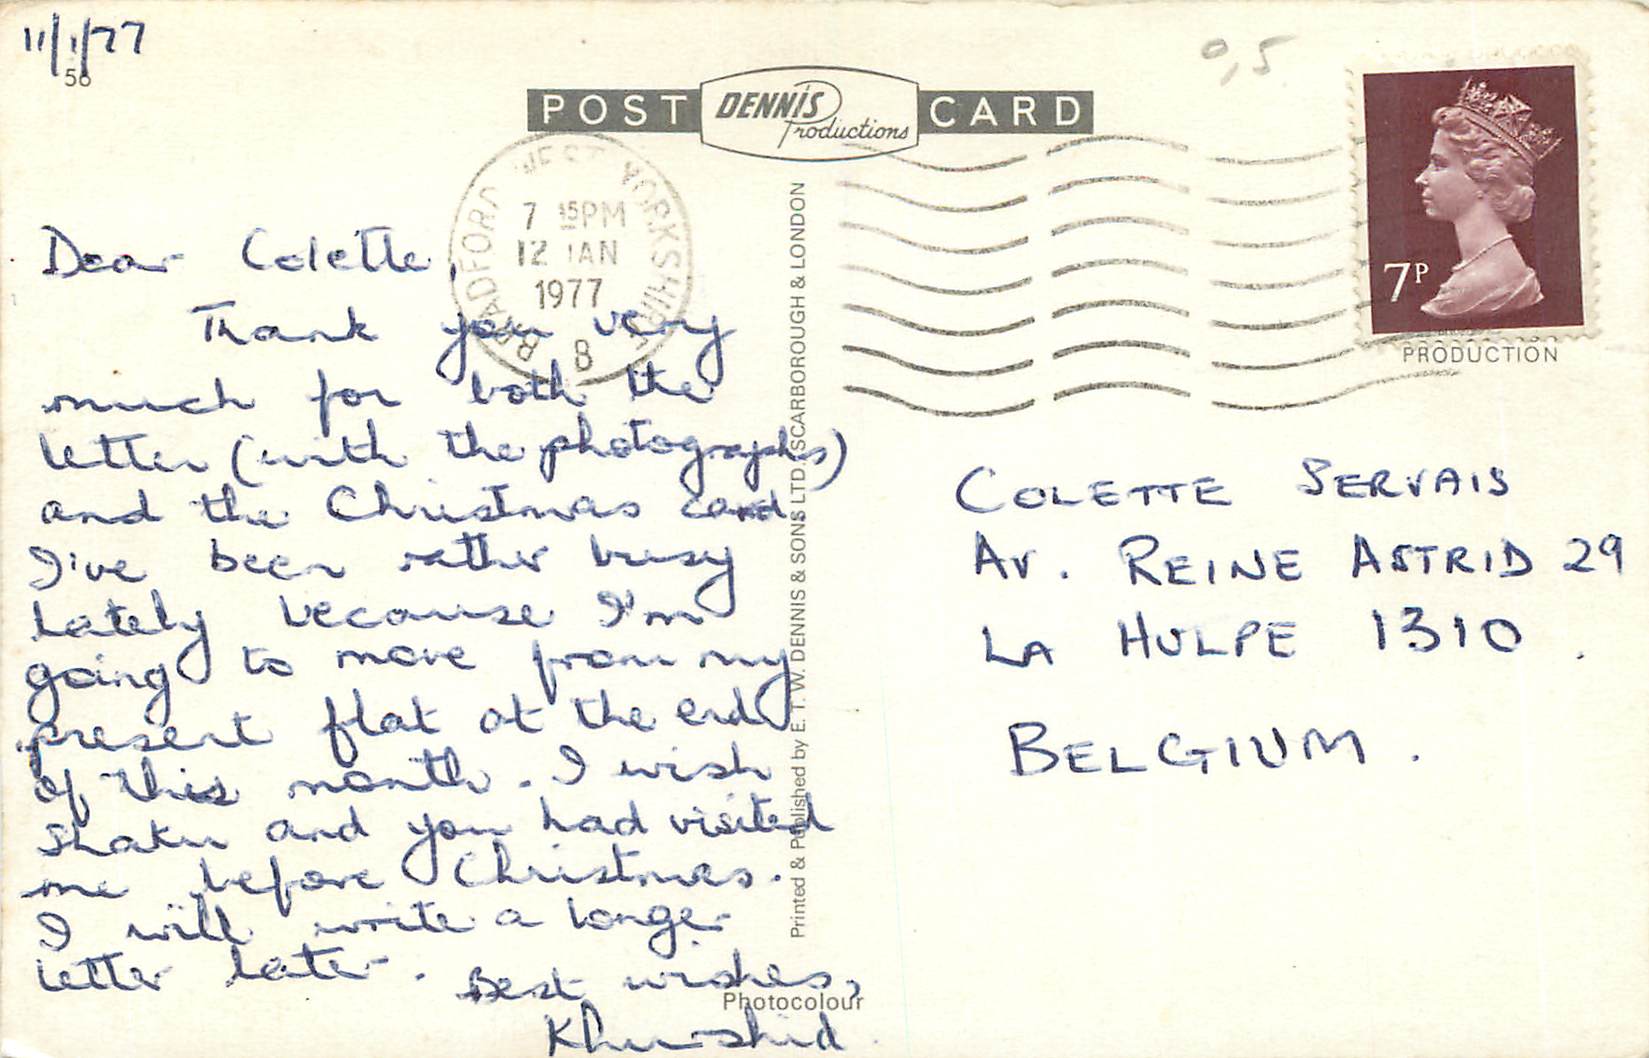 11/1/77
56
0,5
POST DENNIS Productions CARD
BRADFORD WEST YORKSHIRE
7 15PM
12 JAN
1977
8
7P
PRODUCTION
Dear Colette,
Thank you very
much for both the
letter (with the photographs)
and the Christmas card.
I've been rather busy
lately because I'm
going to move from my
present flat at the end
of this month. I wish
Shaku and you had visited
me before Christmas.
I will write a longer
letter later.
Best wishes,
Khurshid.
Printed & Published by E. T. W. DENNIS & SONS LTD. SCARBOROUGH & LONDON
Photocolour
COLETTE SERVAIS
AV. REINE ASTRID 29
LA HULPE 1310.
BELGIUM.